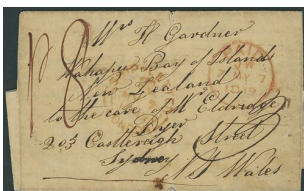 Mrs H Gardner
Wahapu Bay of Islands
New Zealand
to the care of Mr Eldridge
Dyer
203 Castlereigh Street
Sydney
N S Wales